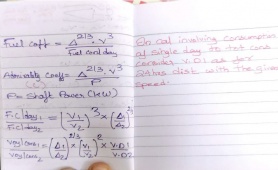 Fuel coff = Δ^2/3 . V^3
Fuel cons/day
Admiralty coeff = Δ^2/3 . V^3
(C) P
P = Shaft Power (KW)
F.C/day1 / F.C/day2 = (V1/V2)^3 × (Δ1/Δ2)^2/3
voy/cons1 / voy/cons2 = (Δ1/Δ2)^2/3 × (V1/V2)^2 × V.D1/V.D2
involving consumption
single day
consider V.D1 as for
24hrs dist with the given
speed.